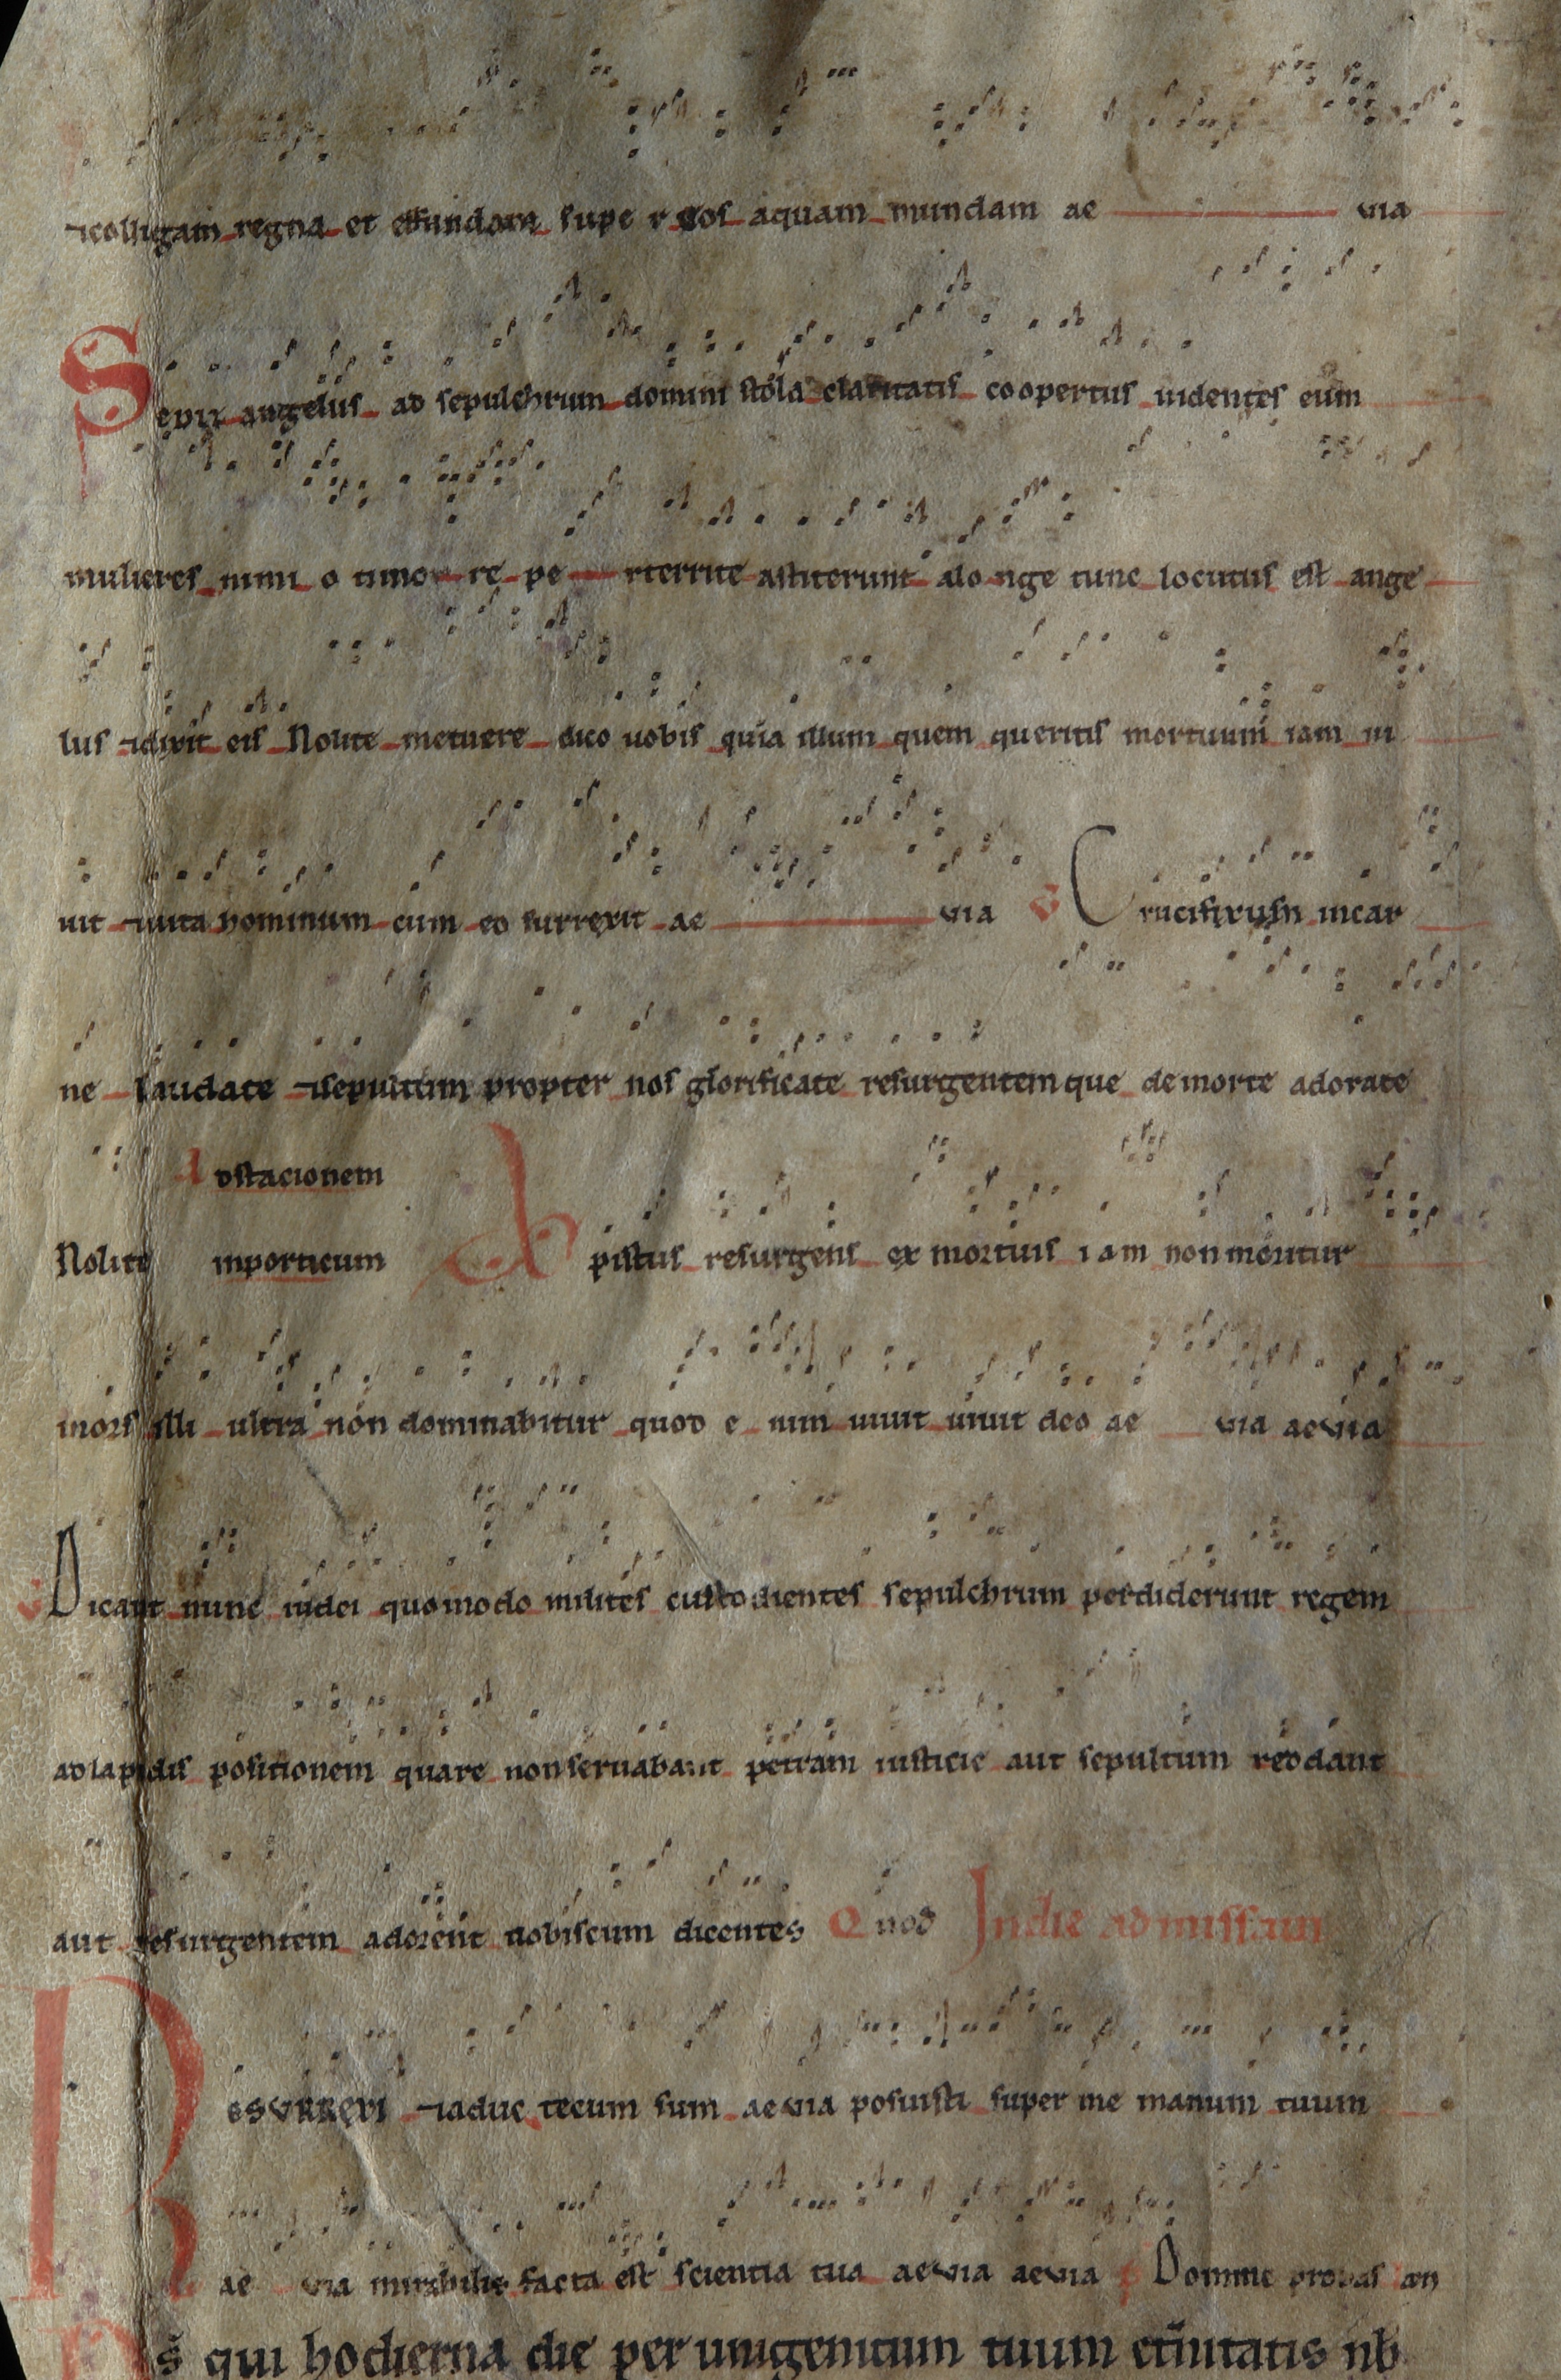 ⁊colligam regna et effundam supe r uos aquam mundam ae uia
Sedit angelus ad sepulchrum domini stola claritatis coopertus uidentes eum
mulieres nimi o timo re pe rterrite astiterunt alo nge tunc locutus est ange
lus ⁊dixit eis Nolite metuere dico uobis quia illum quem queritis mortuum iam ui
uit ⁊uita hominum cum eo surrexit ae uia V Crucifixum incar
ne laudate ⁊sepultum propter nos glorificate resurgentem que de morte adorate
Ad stacionem
Nolite in porticum Xpistus resurgens ex mortuis iam non moritur
mors illi ultra non dominabitur quod e nim uiuit uiuit deo ae uia aeuia
V Dicant nunc iudei quomodo milites custodientes sepulchrum perdiderunt regem
ad lapidis positionem quare non seruabant petram iusticie aut sepultum reddant
aut resurgentem adorent nobiscum dicentes Quod In die ad missam
RESURREXI ⁊aduc tecum sum aeuia posuisti super me manum tuum
ae uia mirabilis facta est scientia tua aeuia aeuia Domine probas
Ds̄ qui hodierna die per unigenitum tuum et̄nitatis nb̄